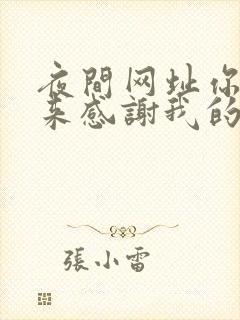 夜間网址你
来感謝我的
張小雷